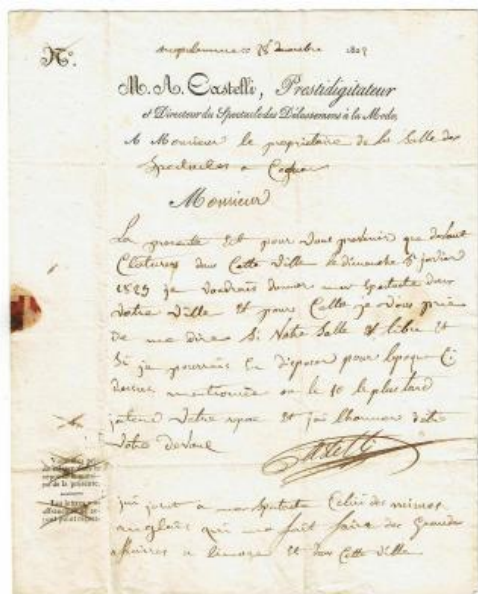 N°.
M. A. Castelli, Prestidigitateur
et Directeur du Spectacle des Délassemens à la Mode,
A Monsieur le propriétaire de la Salle des
Spectacles a Cognac
Monsieur
La presente Est pour vous prevenir que devant
Cloturer dans Cette Ville le dimanche 5 janvier
1829 je voudrais donner mon Spectacle dans
votre Ville Et pour Cella je vous prie
de me dire Si Votre Salle Est libre Et
Si je pourrais En disposer pour lepoque Ci
dessus mentionnée ou le 10 le plus tard
jatend votre repose Et jai lhonneur dêtre
Votre devoué
Castelli
jai joint a mon Spectacle Celui des mimes
anglais qui ma fait faire des Grandes
affaires a limoges Et dans Cette Ville